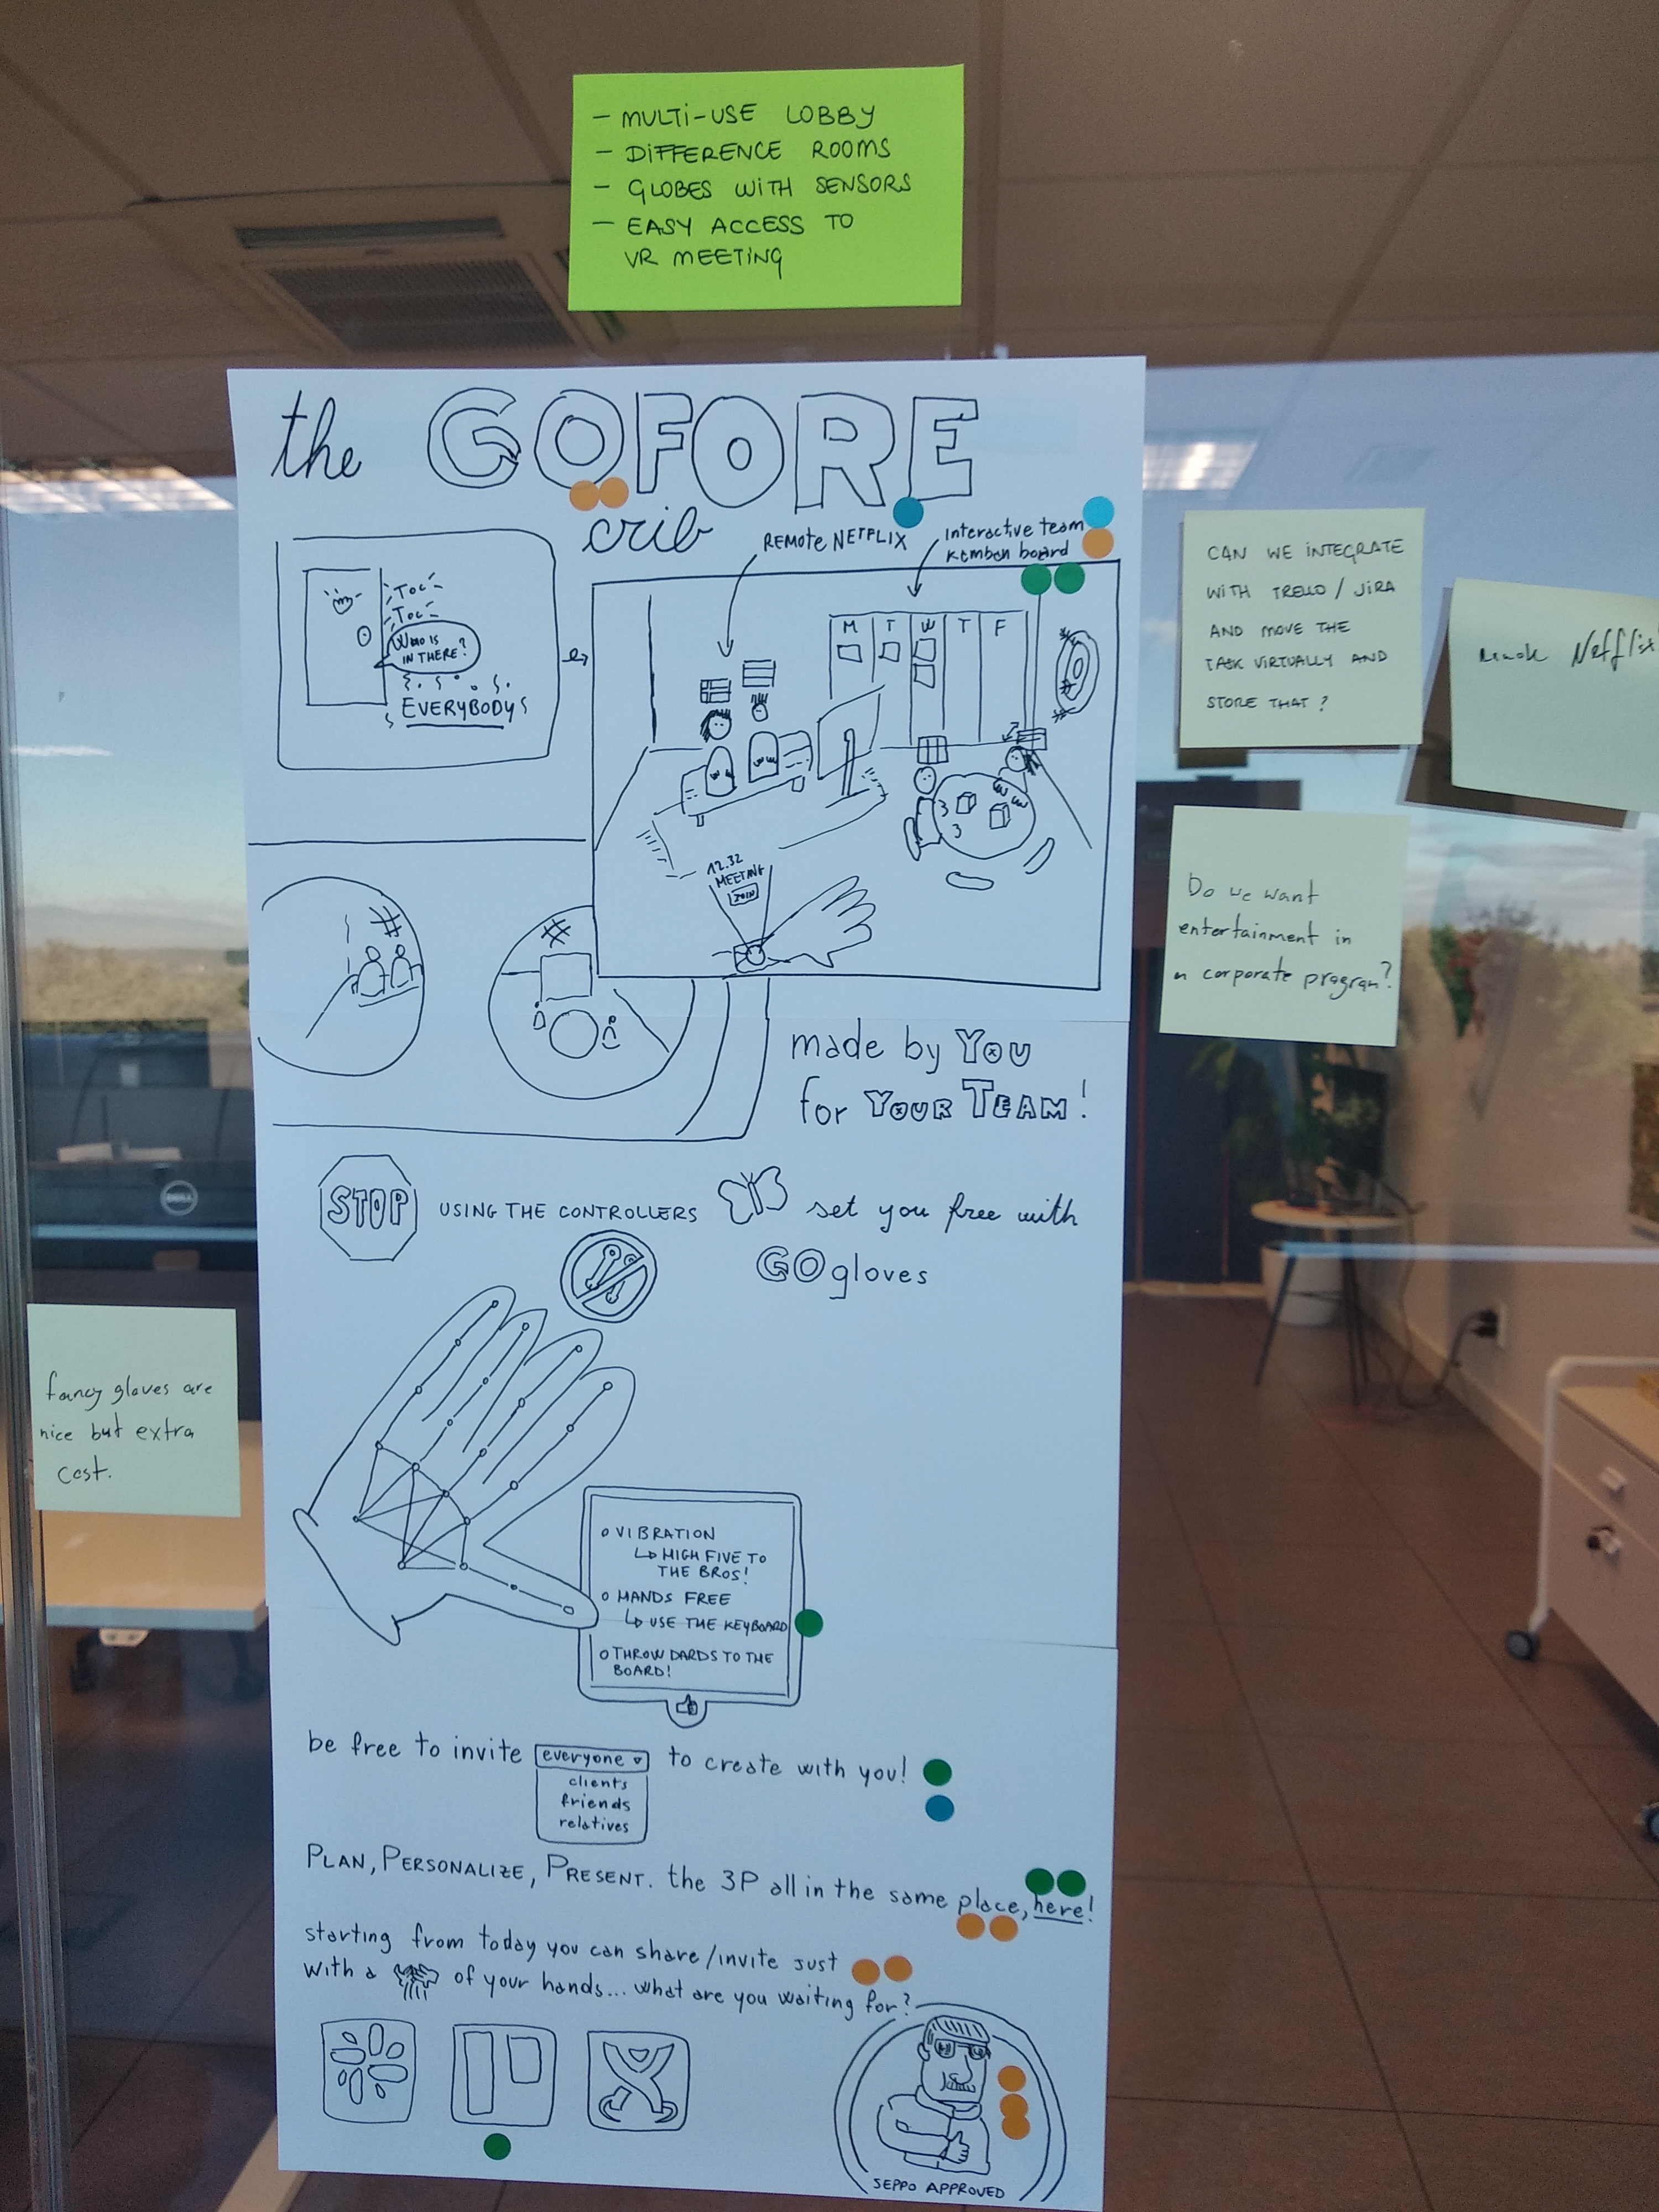 - MULTI-USE LOBBY
- DIFFERENCE ROOMS
- GLOBES WITH SENSORS
- EASY ACCESS TO
VR MEETING
the GOFORE
crib
REMOTE NETFLIX
Interactive team
Kemban board
TOC
TOC
WHO IS
IN THERE?
EVERYBODY
M T W T F
12.32
MEETING
JOIN
made by YOU
for YOUR TEAM!
STOP USING THE CONTROLLERS set you free with
GOgloves
VIBRATION
HIGH FIVE TO
THE BROS!
HANDS FREE
USE THE KEYBOARD
THROW DARDS TO THE
BOARD!
be free to invite everyone to create with you!
clients
friends
relatives
PLAN, PERSONALIZE, PRESENT. the 3P all in the same place, here!
starting from today you can share/invite just
with a of your hands... what are you waiting for?
SEPPO APPROVED
CAN WE INTEGRATE
WITH TRELLO / JIRA
AND MOVE THE
TASK VIRTUALLY AND
STORE THAT?
Netflix
Do we want
entertainment in
a corporate program?
fancy gloves are
nice but extra
cost.
DELL